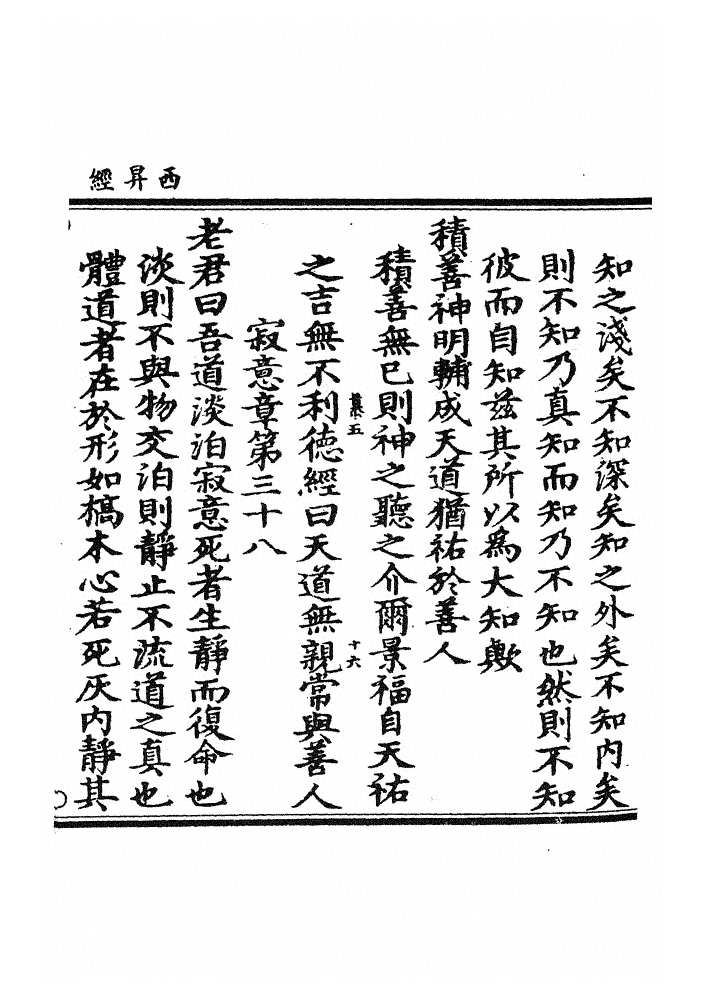 西昇經
知之淺矣不知深矣知之外矣不知内矣
則不知乃真知而知乃不知也然則不知
彼而自知兹其所以爲大知歟
積善神明輔成天道猶祐於善人
積善無已則神之聽之介爾景福自天祐
之吉無不利德經曰天道無親常與善人
慕五
十六
寂意章第三十八
老君曰吾道淡泊寂意死者生靜而復命也
淡則不與物交泊則靜止不流道之真也
體道者在於形如槁木心若死灰内靜其